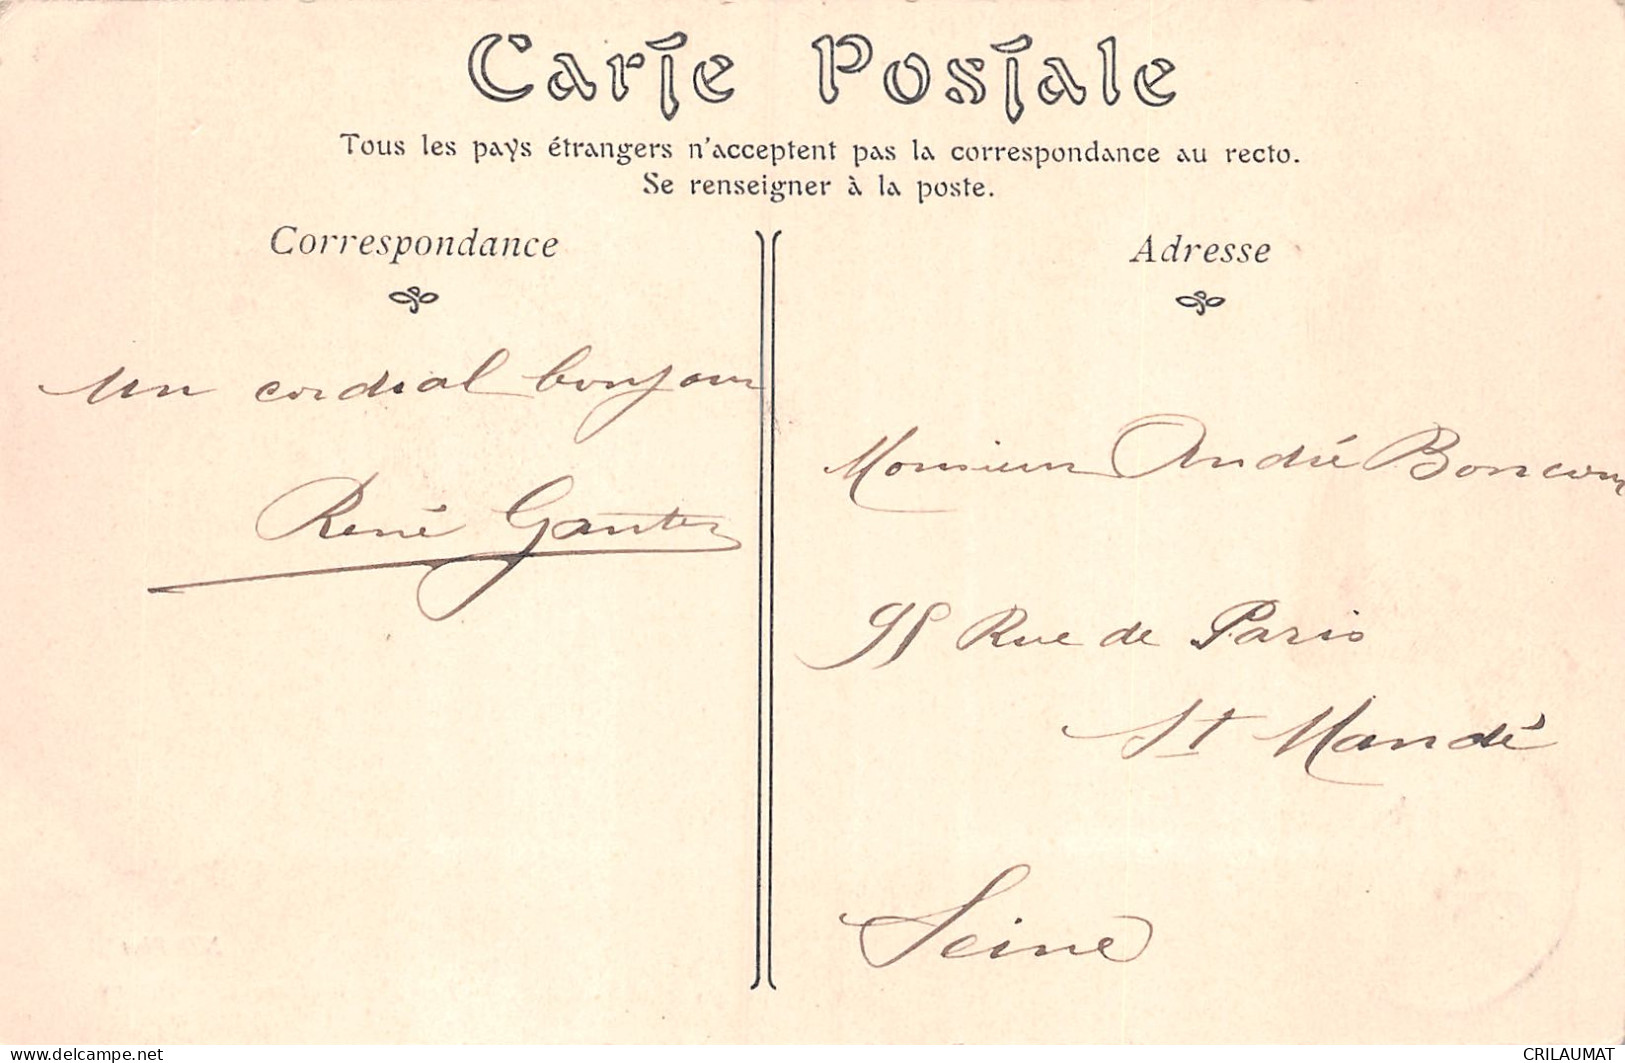 Carte Postale
Tous les pays étrangers n'acceptent pas la correspondance au recto.
Se renseigner à la poste.
Correspondance
Un cordial bonjour
René
Adresse
Monsieur André Boncour
Rue de Paris
St Mandé
Seine
www.delcampe.net
CRILAUMAT